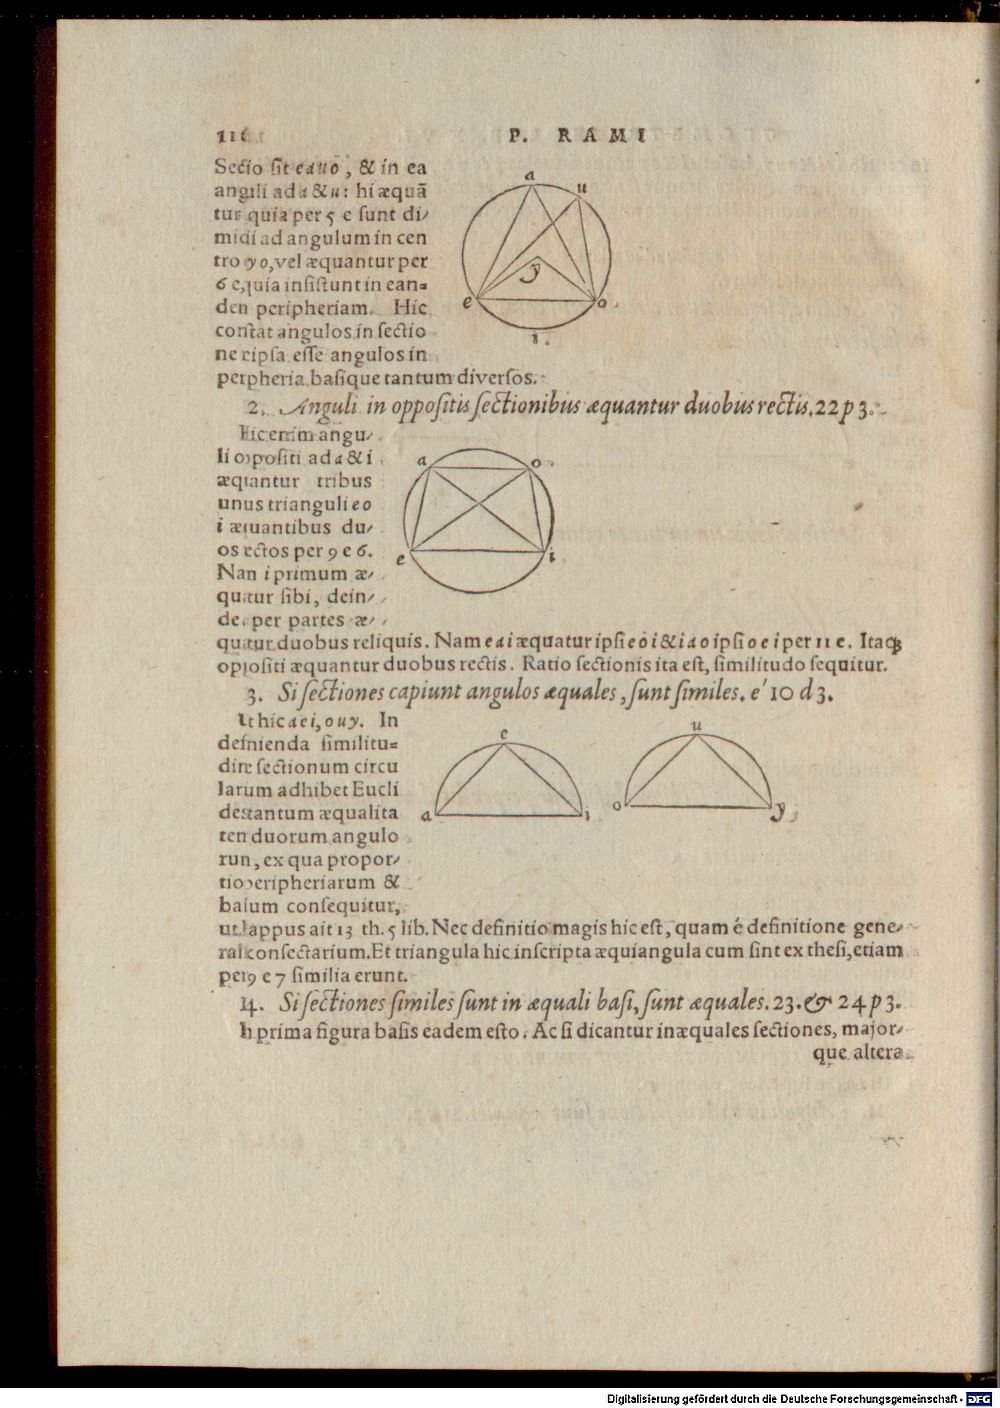 116
P. RAMI
Sectio sit eauo, & in ea
anguli ad a & u: hi æquã
tur quia per 5 e sunt di/
midi ad angulum in cen
tro yo, vel æquantur per
6 e, quia insistunt in ean=
dem peripheriam. Hic
constat angulos in sectio
ne eipsa esse angulos in
perpheria basique tantum diversos.
a
u
y
e
o
i
2. Anguli in oppositis sectionibus æquantur duobus rectis. 22 p 3.
Hic enim angu/
li oppositi ad a & i
æquantur tribus
unus trianguli eo
i æquantibus du/
os rectos per 9 e 6.
Nam i primum æ/
quatur sibi, dein/
de per partes æ/
a
o
e
i
quatur duobus reliquis. Nam eai æquatur ipsi eoi & iao ipsi oei per 11 e. Itaq́
oppositi æquantur duobus rectis. Ratio sectionis ita est, similitudo sequitur.
3. Si sectiones capiunt angulos æquales, sunt similes. e' 10 d 3.
Ut hic aei, ouy. In
definienda similitu=
dine sectionum circu
larum adhibet Eucli
des tantum æqualita
tem duorum angulo
rum, ex qua propor/
tio peripheriarum &
basium consequitur,
e
a
i
u
o
y
ut Pappus ait 13 th. 5 lib. Nec definitio magis hic est, quam é definitione gene/
rali consectarium. Et triangula hic inscripta æquiangula cum sint ex thesi, etiam
per 9 e 7 similia erunt.
14. Si sectiones similes sunt in æquali basi, sunt æquales. 23. & 24 p 3.
In prima figura basis eadem esto. Ac si dicantur inæquales sectiones, major/
que altera
Digitalisierung gefördert durch die Deutsche Forschungsgemeinschaft - DFG